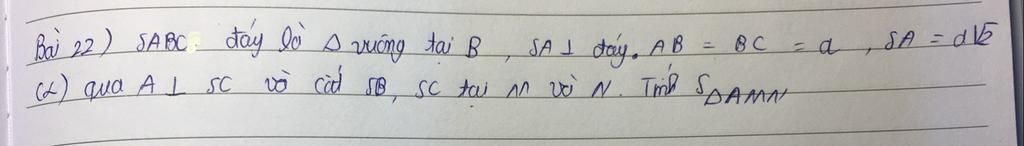 Bài 22) SABC. đáy là Δ vuông tại B, SA ⊥ đáy. AB = BC = a, SA = a√2
(α) qua A ⊥ SC và cắt SB, SC tại M và N. Tính S_ΔAMN